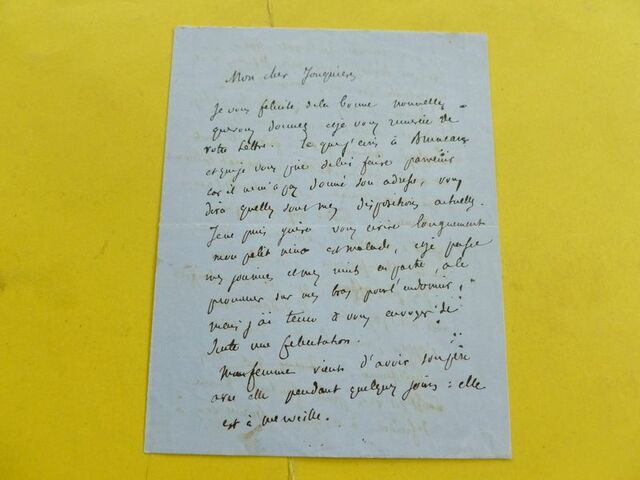 Mon cher Jonquières
Je vous félicite de la bonne nouvelle
que vous donnez et je vous remercie de
votre lettre. Ce que j'écris à Bruneau
et que je vous prie de lui faire parvenir
car il ne m'a pas donné son adresse, vous
dira quelles sont mes dispositions actuelles.
Je ne puis guère vous écrire longuement
mon petit est malade, et je passe
mes journées et mes nuits en partie, à le
promener sur mes bras pour l'endormir,
mais j'ai tenu à vous envoyer de
suite une félicitation.
Ma femme vient d'avoir son père
avec elle pendant quelques jours : elle
est à merveille.